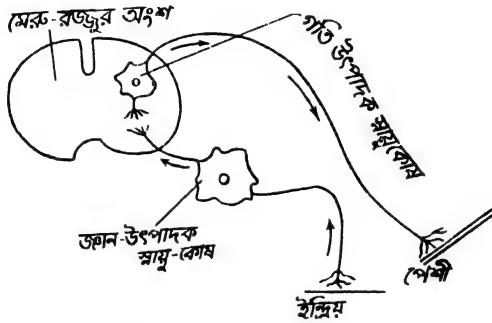 মেরু-রজ্জুর অংশ
গতি উৎপাদক স্নায়ুকোষ
জ্ঞান-উৎপাদক
স্নায়ু-কোষ
ইন্দ্রিয়
পেশী